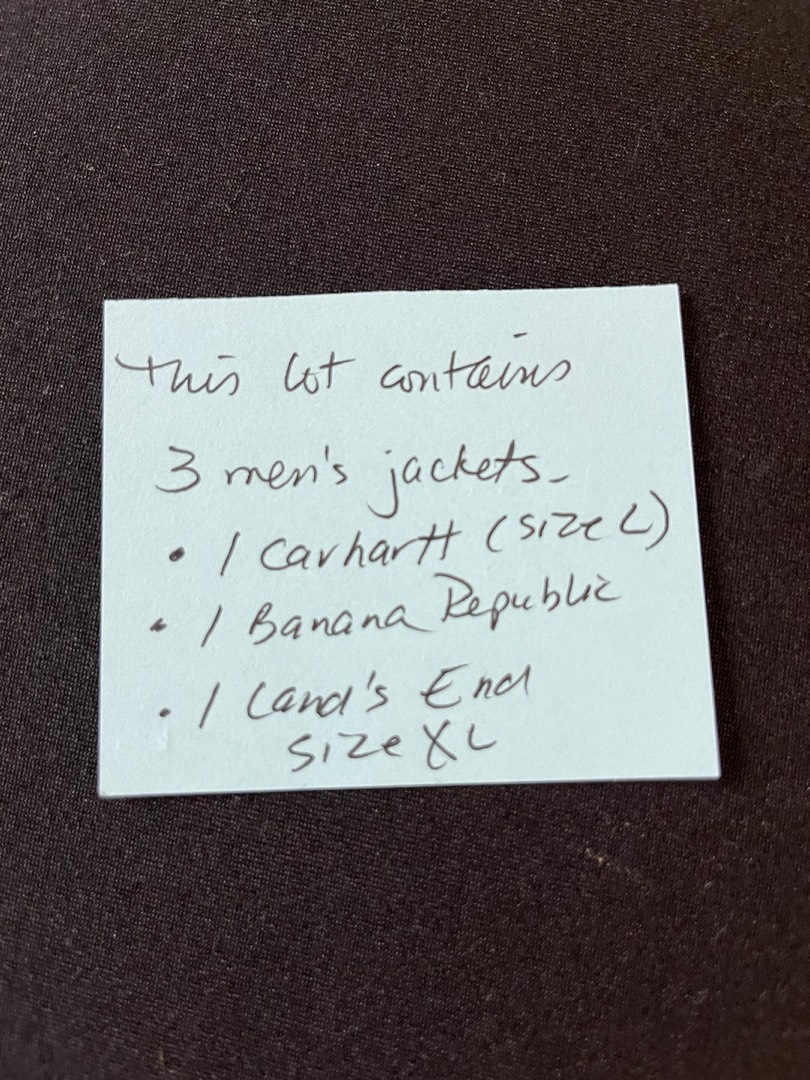 This lot contains
3 men's jackets-
• 1 Carhartt (size L)
• 1 Banana Republic
• 1 Land's End
size XL